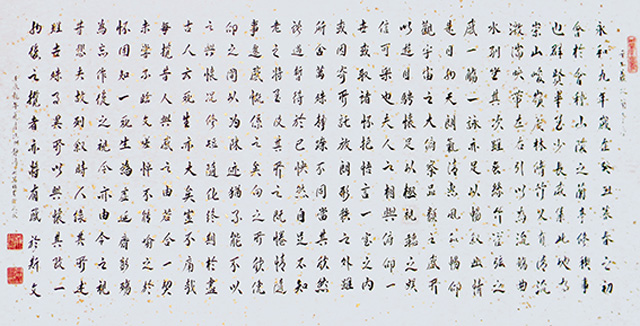 永和九年歲在癸丑暮春之初
會於會稽山陰之蘭亭脩稧事
也群賢畢至少長咸集此地有
崇山峻嶺茂林脩竹又有清流
激湍映帶左右引以為流觴曲
水列坐其次雖無絲竹管弦之
盛一觴一詠亦足以暢敘幽情
是日也天朗氣清惠風和暢仰
觀宇宙之大俯察品類之盛所
以遊目騁懷足以極視聽之娛
信可樂也夫人之相與俯仰一
世或取諸懷抱悟言一室之內
或因寄所託放浪形骸之外雖
趣舍萬殊靜躁不同當其欣於
所遇暫得於己快然自足不知
老之將至及其所之既倦情隨
事遷感慨係之矣向之所欣俛
仰之間以為陳迹猶不能不以
之興懷況脩短隨化終期於盡
古人云死生亦大矣豈不痛哉
每攬昔人興感之由若合一契
未嘗不臨文嗟悼不能喻之於
懷固知一死生為虛誕齊彭殤
為妄作後之視今亦由今之視
昔悲夫故列敘時人錄其所述
雖世殊事異所以興懷其致一
也後之攬者亦將有感於斯文